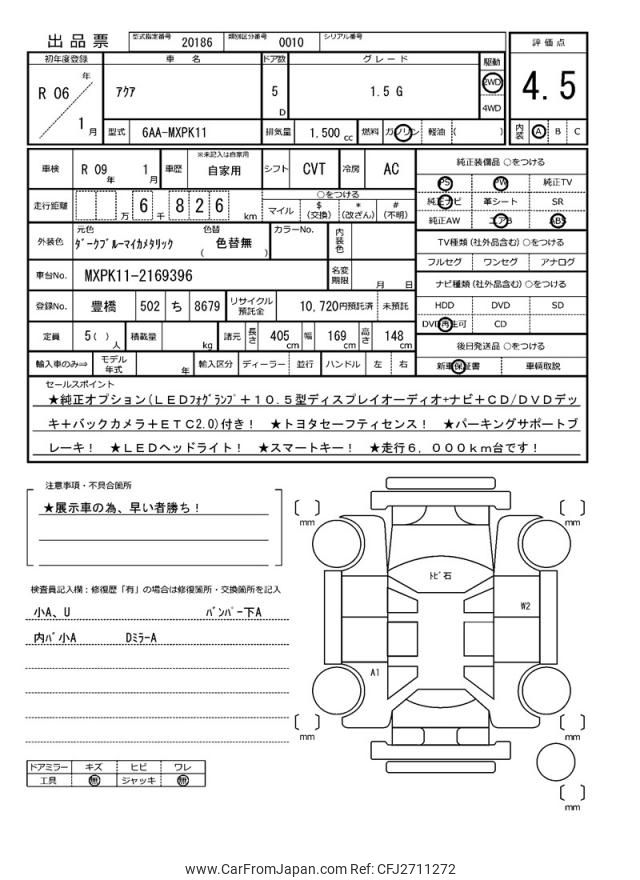 出品票 型式指定番号 20186 類別区分番号 0010 シリアル番号
初年度登録 車名 ドア数 グレード 駆動 評価点
R 06 年 1 月 アクア 5 D 1.5 G 2WD 4WD 4.5
型式 6AA-MXPK11 排気量 1.500 cc 燃料 ガソリン 軽油 ( ) 内装 A B C
車検 R 09 年 1 月 車歴 ※未記入は自家用 自家用 シフト CVT 冷房 AC
純正装備品 ○をつける
PS PW 純正TV
走行距離 万 6 千 8 2 6 km ○をつける
マイル $ (交換) * (改ざん) # (不明)
純正ナビ 革シート SR
純正AW エアB ABS
外装色 元色 ダークブルーマイカメタリック 色替 ( 色替無 ) カラーNo. 内装色
TV種類 (社外品含む) ○をつける
フルセグ ワンセグ アナログ
車台No. MXPK11-2169396 名変期限 月 日
ナビ種類 (社外品含む) ○をつける
登録No. 豊橋 502 ち 8679 リサイクル預託金 10,720円預託済 未預託
HDD DVD SD
DVD再生可 CD
定員 5 ( ) 人 積載量 kg 諸元 長さ 405 cm 幅 169 cm 高さ 148 cm
後日発送品 ○をつける
輸入車のみ⇒ モデル年式 年 輸入区分 ディーラー 並行 ハンドル 左 右
新車保証書 車輌取説
セールスポイント
★純正オプション(LEDフォグランプ+10.5型ディスプレイオーディオ+ナビ+CD/DVDデッ
キ+バックカメラ+ETC2.0)付き! ★トヨタセーフティセンス! ★パーキングサポートブ
レーキ! ★LEDヘッドライト! ★スマートキー! ★走行6,000km台です!
注意事項・不具合箇所
★展示車の為、早い者勝ち!
mm mm
検査員記入欄:修復歴「有」の場合は修復箇所・交換箇所を記入
トビ石
小A、U バンパー下A
W2
内バ小A DミラーA
A1
mm mm
ドアミラー キズ ヒビ ワレ
工具 無 ジャッキ 無
mm
www.CarFromJapan.com Ref: CFJ2711272